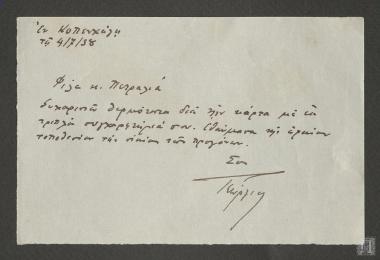 Ἐν Κοπενχάγῃ
τῇ 4/7/38
Φίλε κ. Πετραλιᾶ
Εὐχαριστῶ θερμότατα διὰ τὴν κάρτα μὲ τὰ
τριπλᾶ συγχαρητήριά σου. Ἐθαύμασα τὴν ὡραίαν
τοποθεσίαν τῆς οἰκίας τῶν προγόνων.
Σου
Γεώργιος